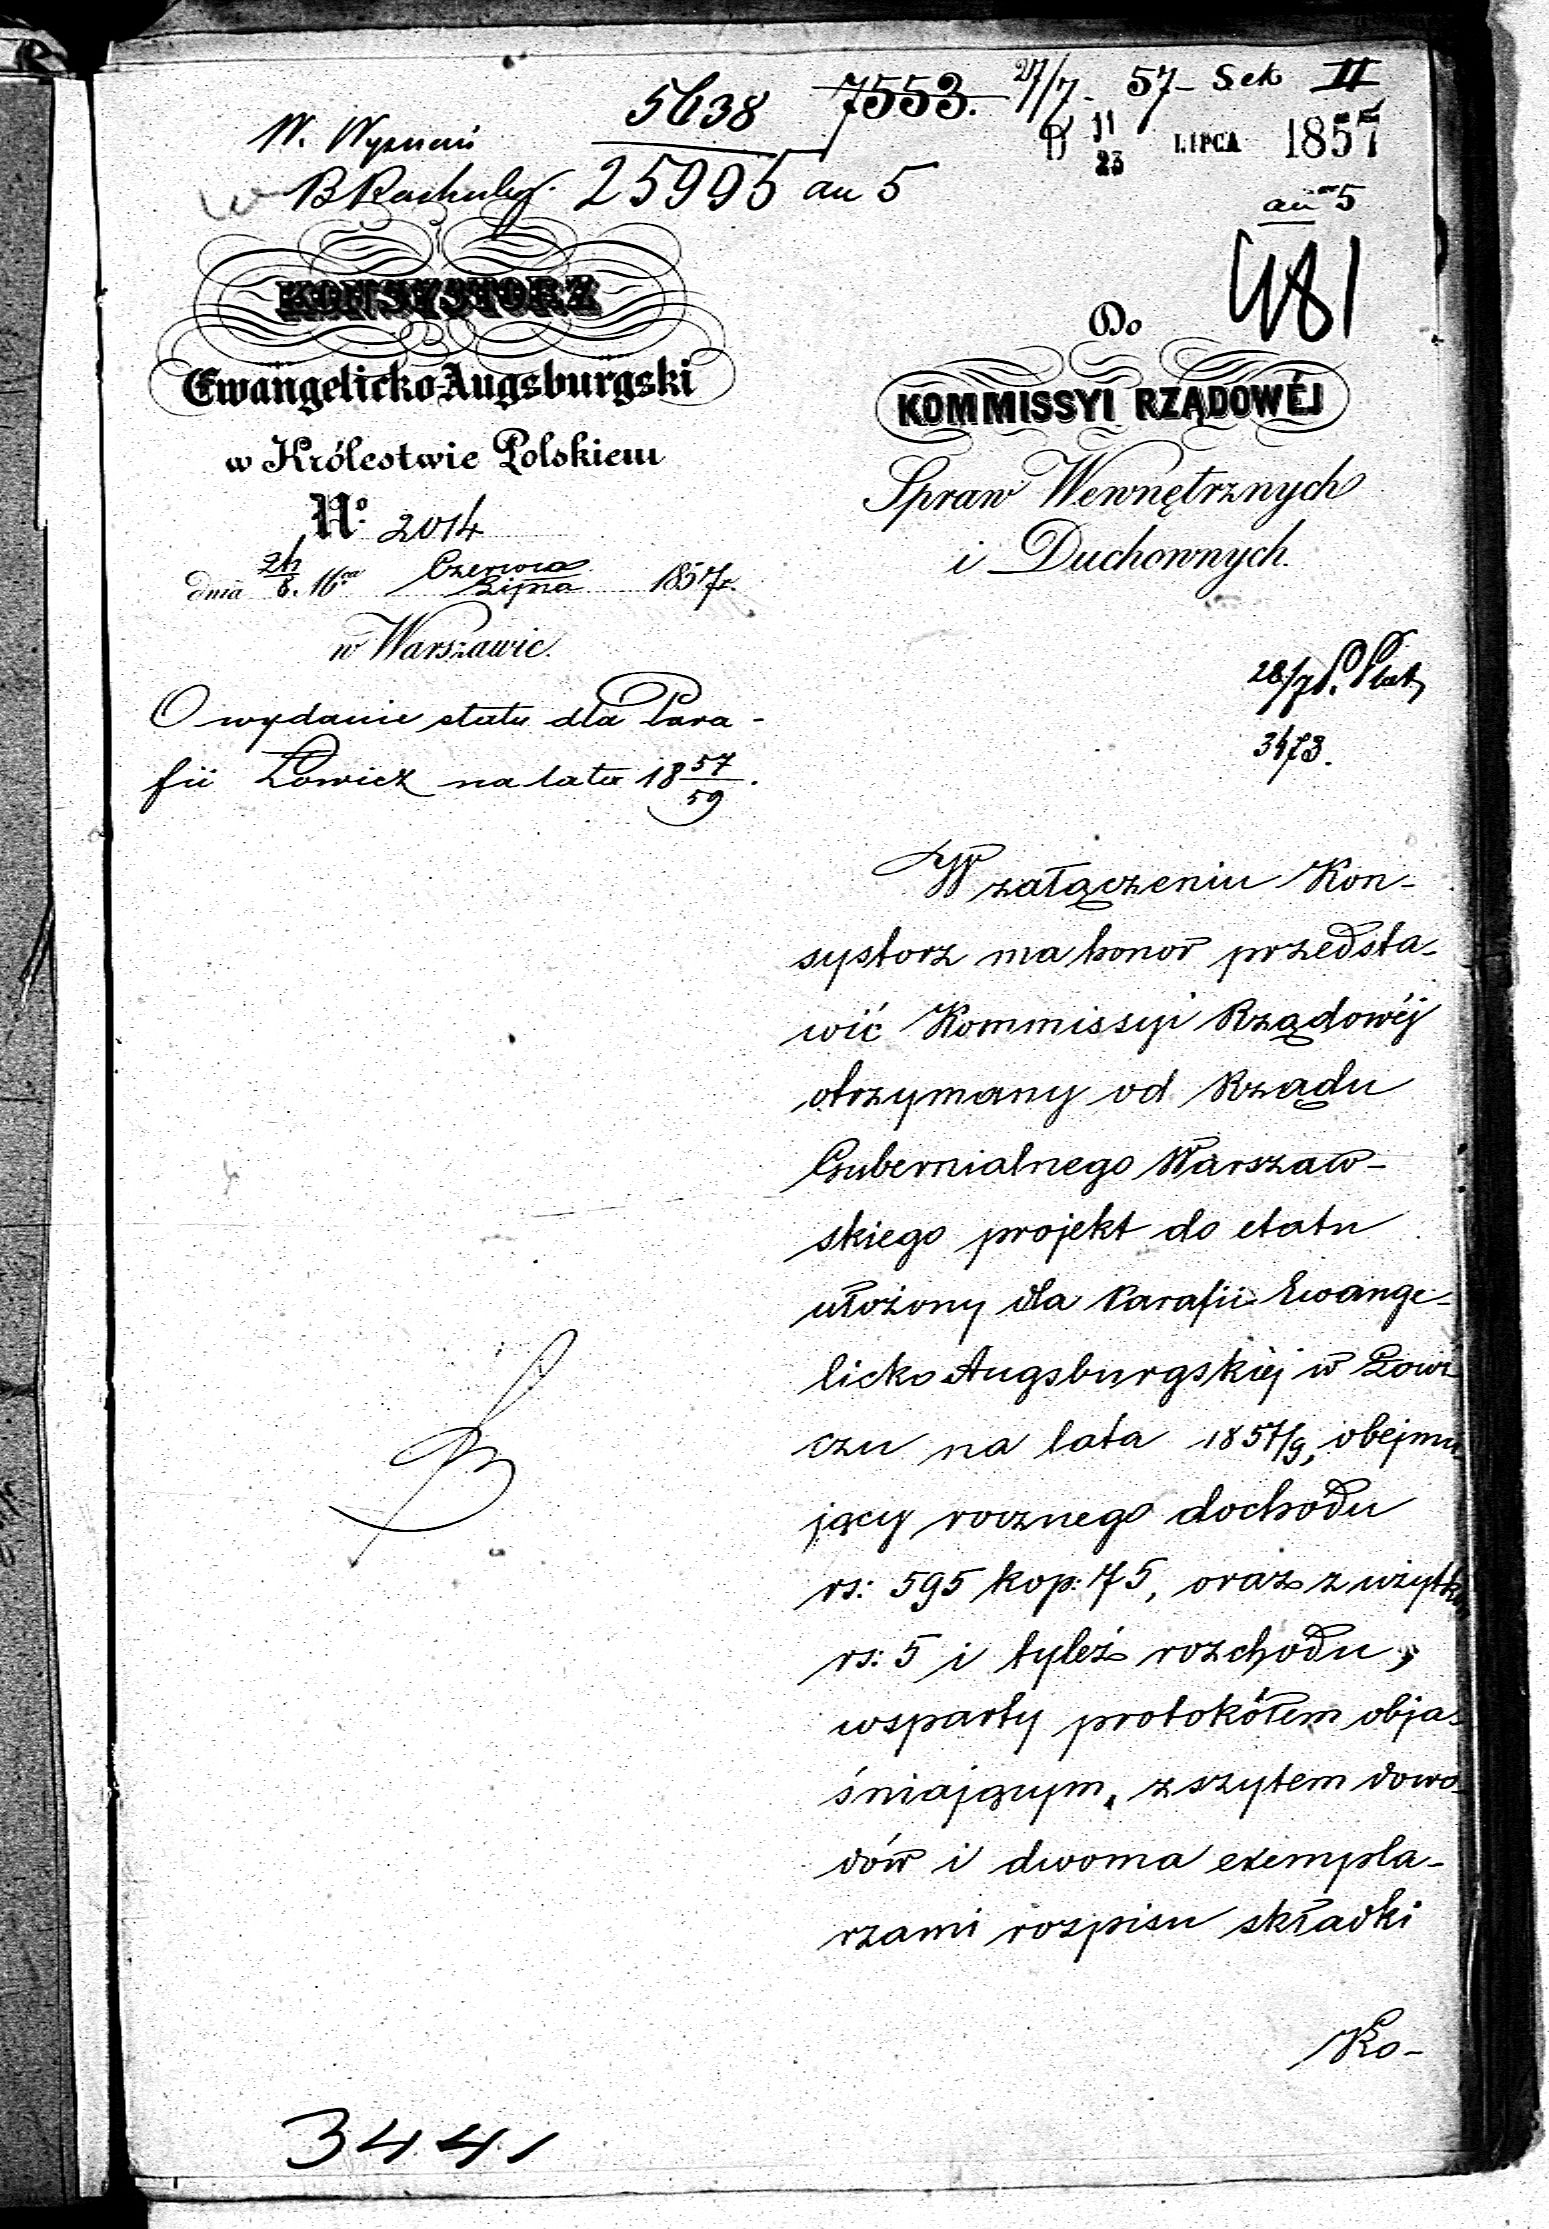 5638 7553. 27/7 - 57 - Sek II
W. Wyznań
D 11/23 LIPCA 1857
25995 an 5
an 5
481
KONSYSTORZ
Ewangelicko-Augsburgski
w Królestwie Polskiem
No. 2014
dnia 8. 16 Czerwca Lipca 1857 r.
w Warszawie.
O wydanie etatu dla Para-
fii Łowicz na lata 18 57/59.
Do
KOMMISSYI RZĄDOWÉJ
Spraw Wewnętrznych
i Duchownych.
28/7
3473.
W załączeniu Kon-
systorz ma honor przedsta-
wić Kommissyi Rządowéj
otrzymany od Rządu
Gubernialnego Warszaw-
skiego projekt do etatu
ułożony dla Parafii Ewange-
licko Augsburgskiej w Łowi-
czu na lata 1857/9, obejmu-
jący rocznego dochodu
rs: 595 kop: 75, oraz z użytków
rs: 5 i tyleż rozchodu,
wsparty protokółem obja-
śniającym, z szytem dowo-
dów i dwoma exempla-
rzami rozpisu składki
Ko-
3441